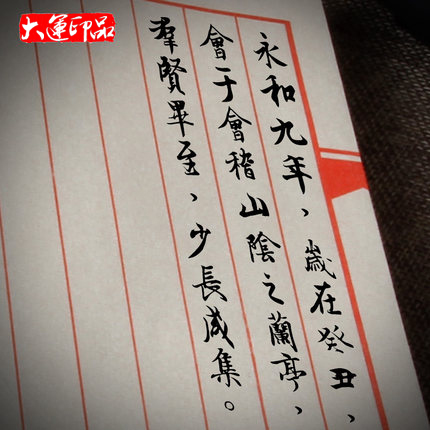 大運印品
永和九年，歲在癸丑，
會于會稽山陰之蘭亭，
羣賢畢至，少長咸集。